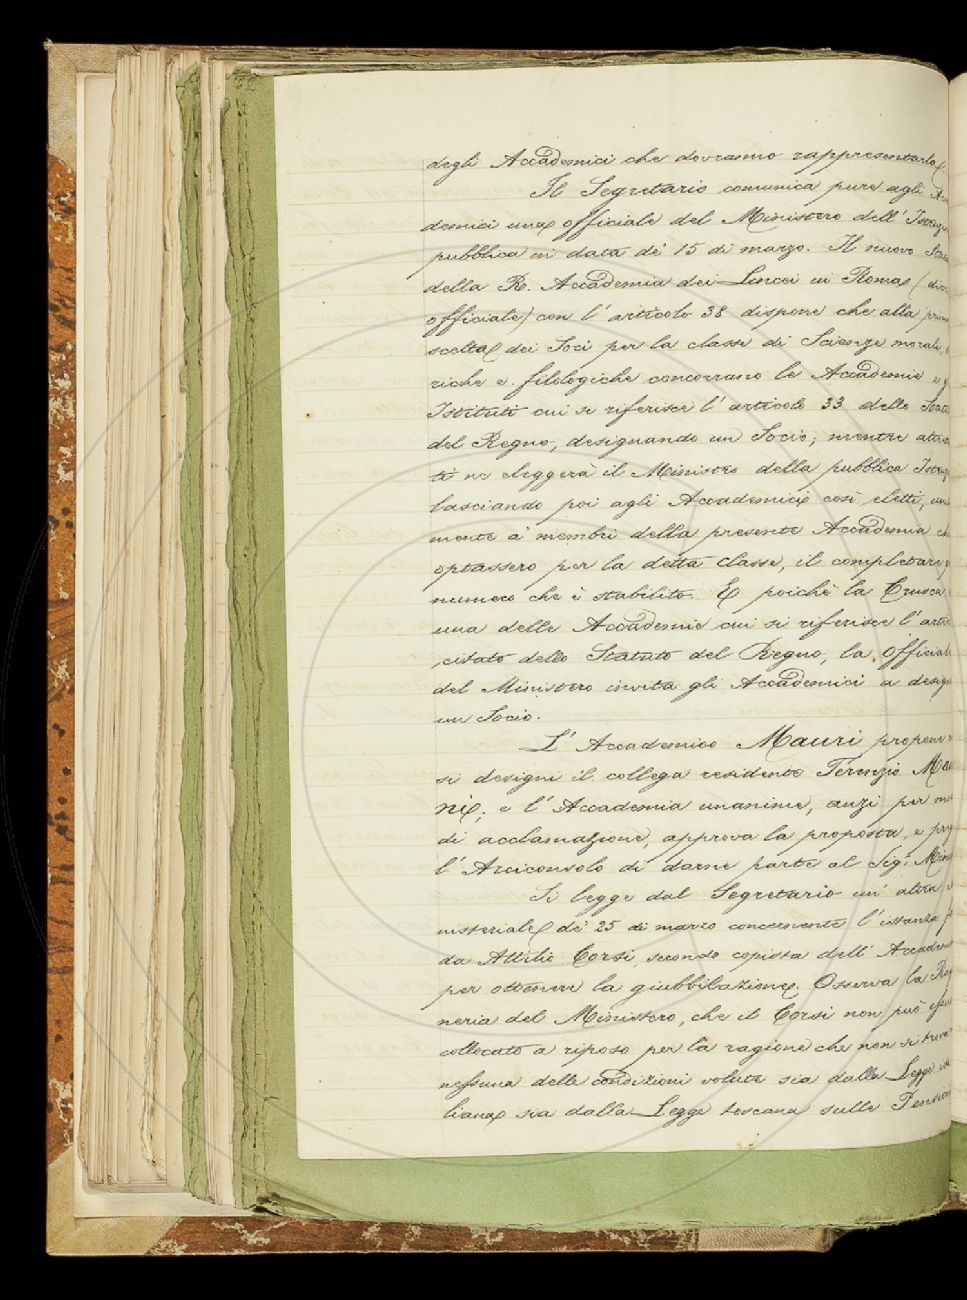 degli Accademici che dovranno rappresentarla.
Il Segretario comunica pure agli Acca
demici una officiale del Ministero dell' Istruz
pubblica in data de' 15 di marzo. Il nuovo Stat
della R. Accademia dei Lincei in Roma (dice
officiale) con l' articolo 38 dispone che alla prim
scelta dei Soci per la classe di Scienze morali,
riche e filologiche concorrano le Accademie e g
Istituti cui si riferisce l' articolo 33 dello Stat
del Regno, designando un Socio; mentre altret
ti ne eleggerà il Ministro della pubblica Istruz
lasciando poi agli Accademici così eletti, uni
mente a' membri della presente Accademia che
optassero per la detta classe, il completare
numero che è stabilito. E poichè la Crusca
una delle Accademie cui si riferisce l' arti
citato dello Statuto del Regno, la officiale
del Ministero invita gli Accademici a desig
un Socio.
L' Accademico Mauri propone
si designi il collega residente Terenzio Ma
ni; e l' Accademia unanime, anzi per
di acclamazione, approva la proposta, e preg
l' Arciconsolo di darne parte al Sig.r Mini
Si legge dal Segretario un' altra
nisteriale de' 25 di marzo concernente l' istanza
da Attilio Corsi, secondo copista dell' Accadem
per ottenere la giubbilazione. Osserva la Rag
neria del Ministero, che il Corsi non può esser
collocato a riposo per la ragione che non si trova
nessuna delle condizioni volute sia dalla Legge ita
liana sia dalla Legge toscana sulle Pensioni